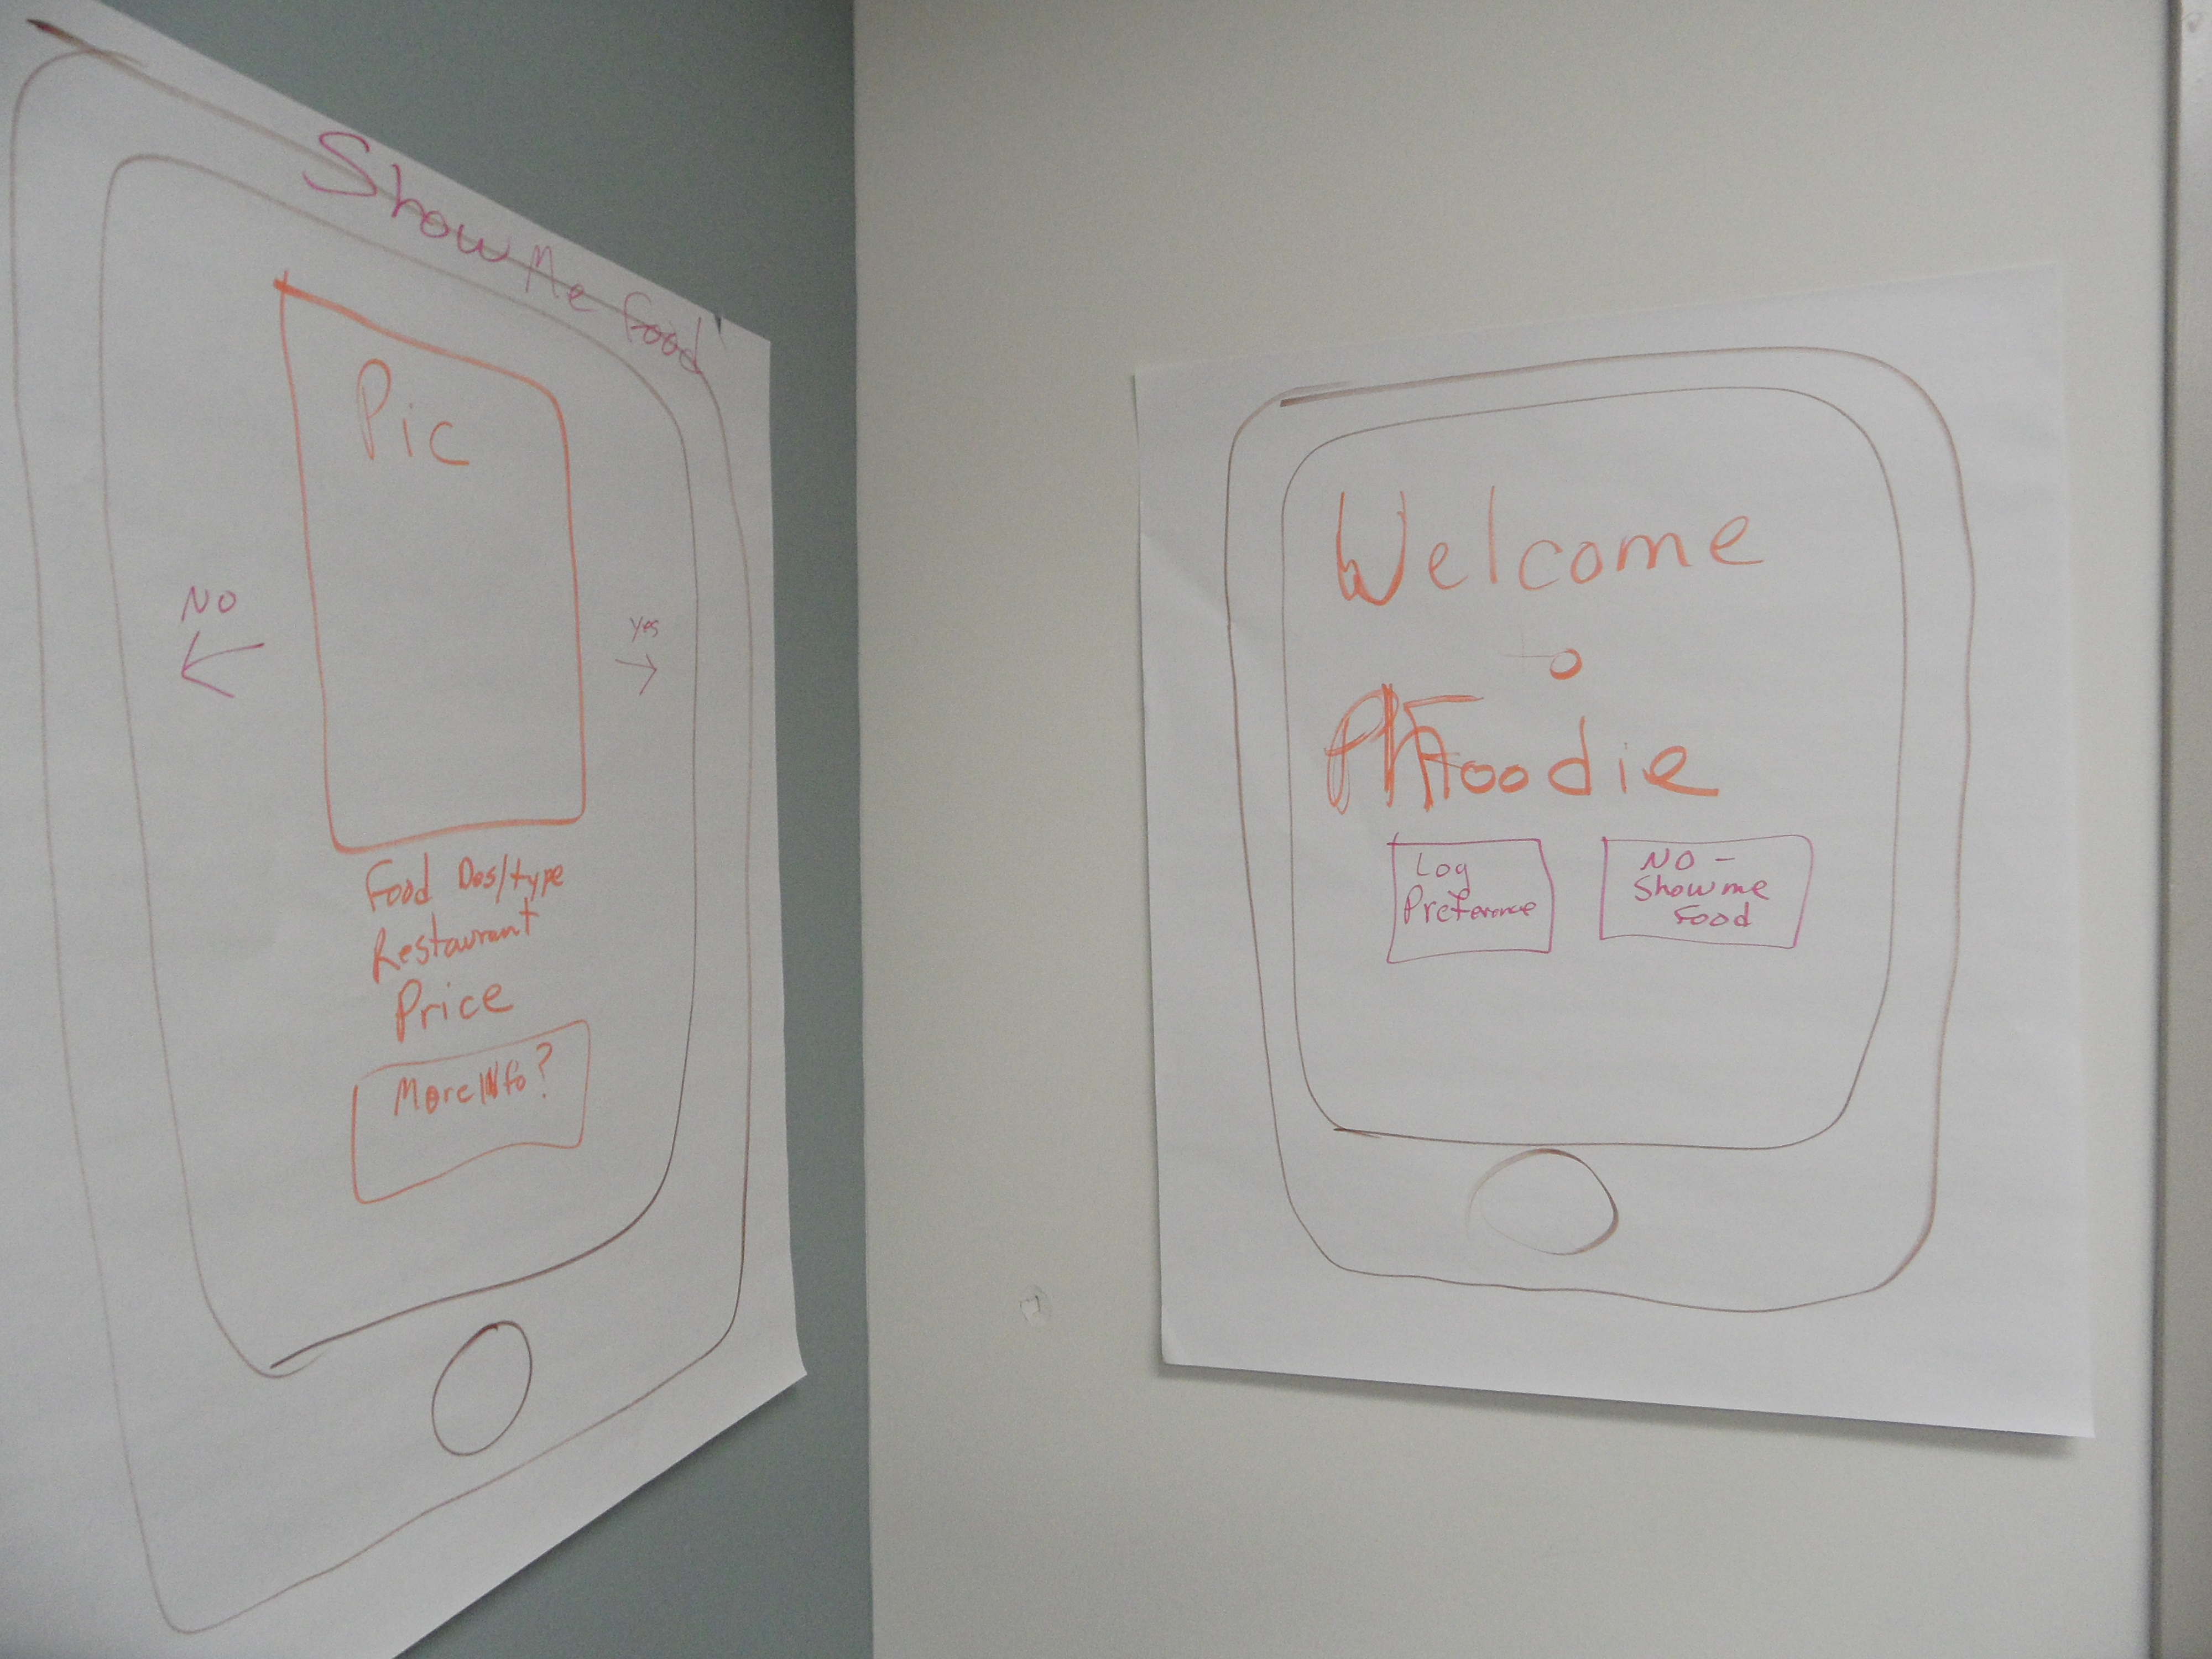 Show Me Food
Pic
NO
yes
Food Des/type
Restaurant
Price
More Info?
Welcome
to
PhFoodie
Log
Preference
NO -
Show me
Food